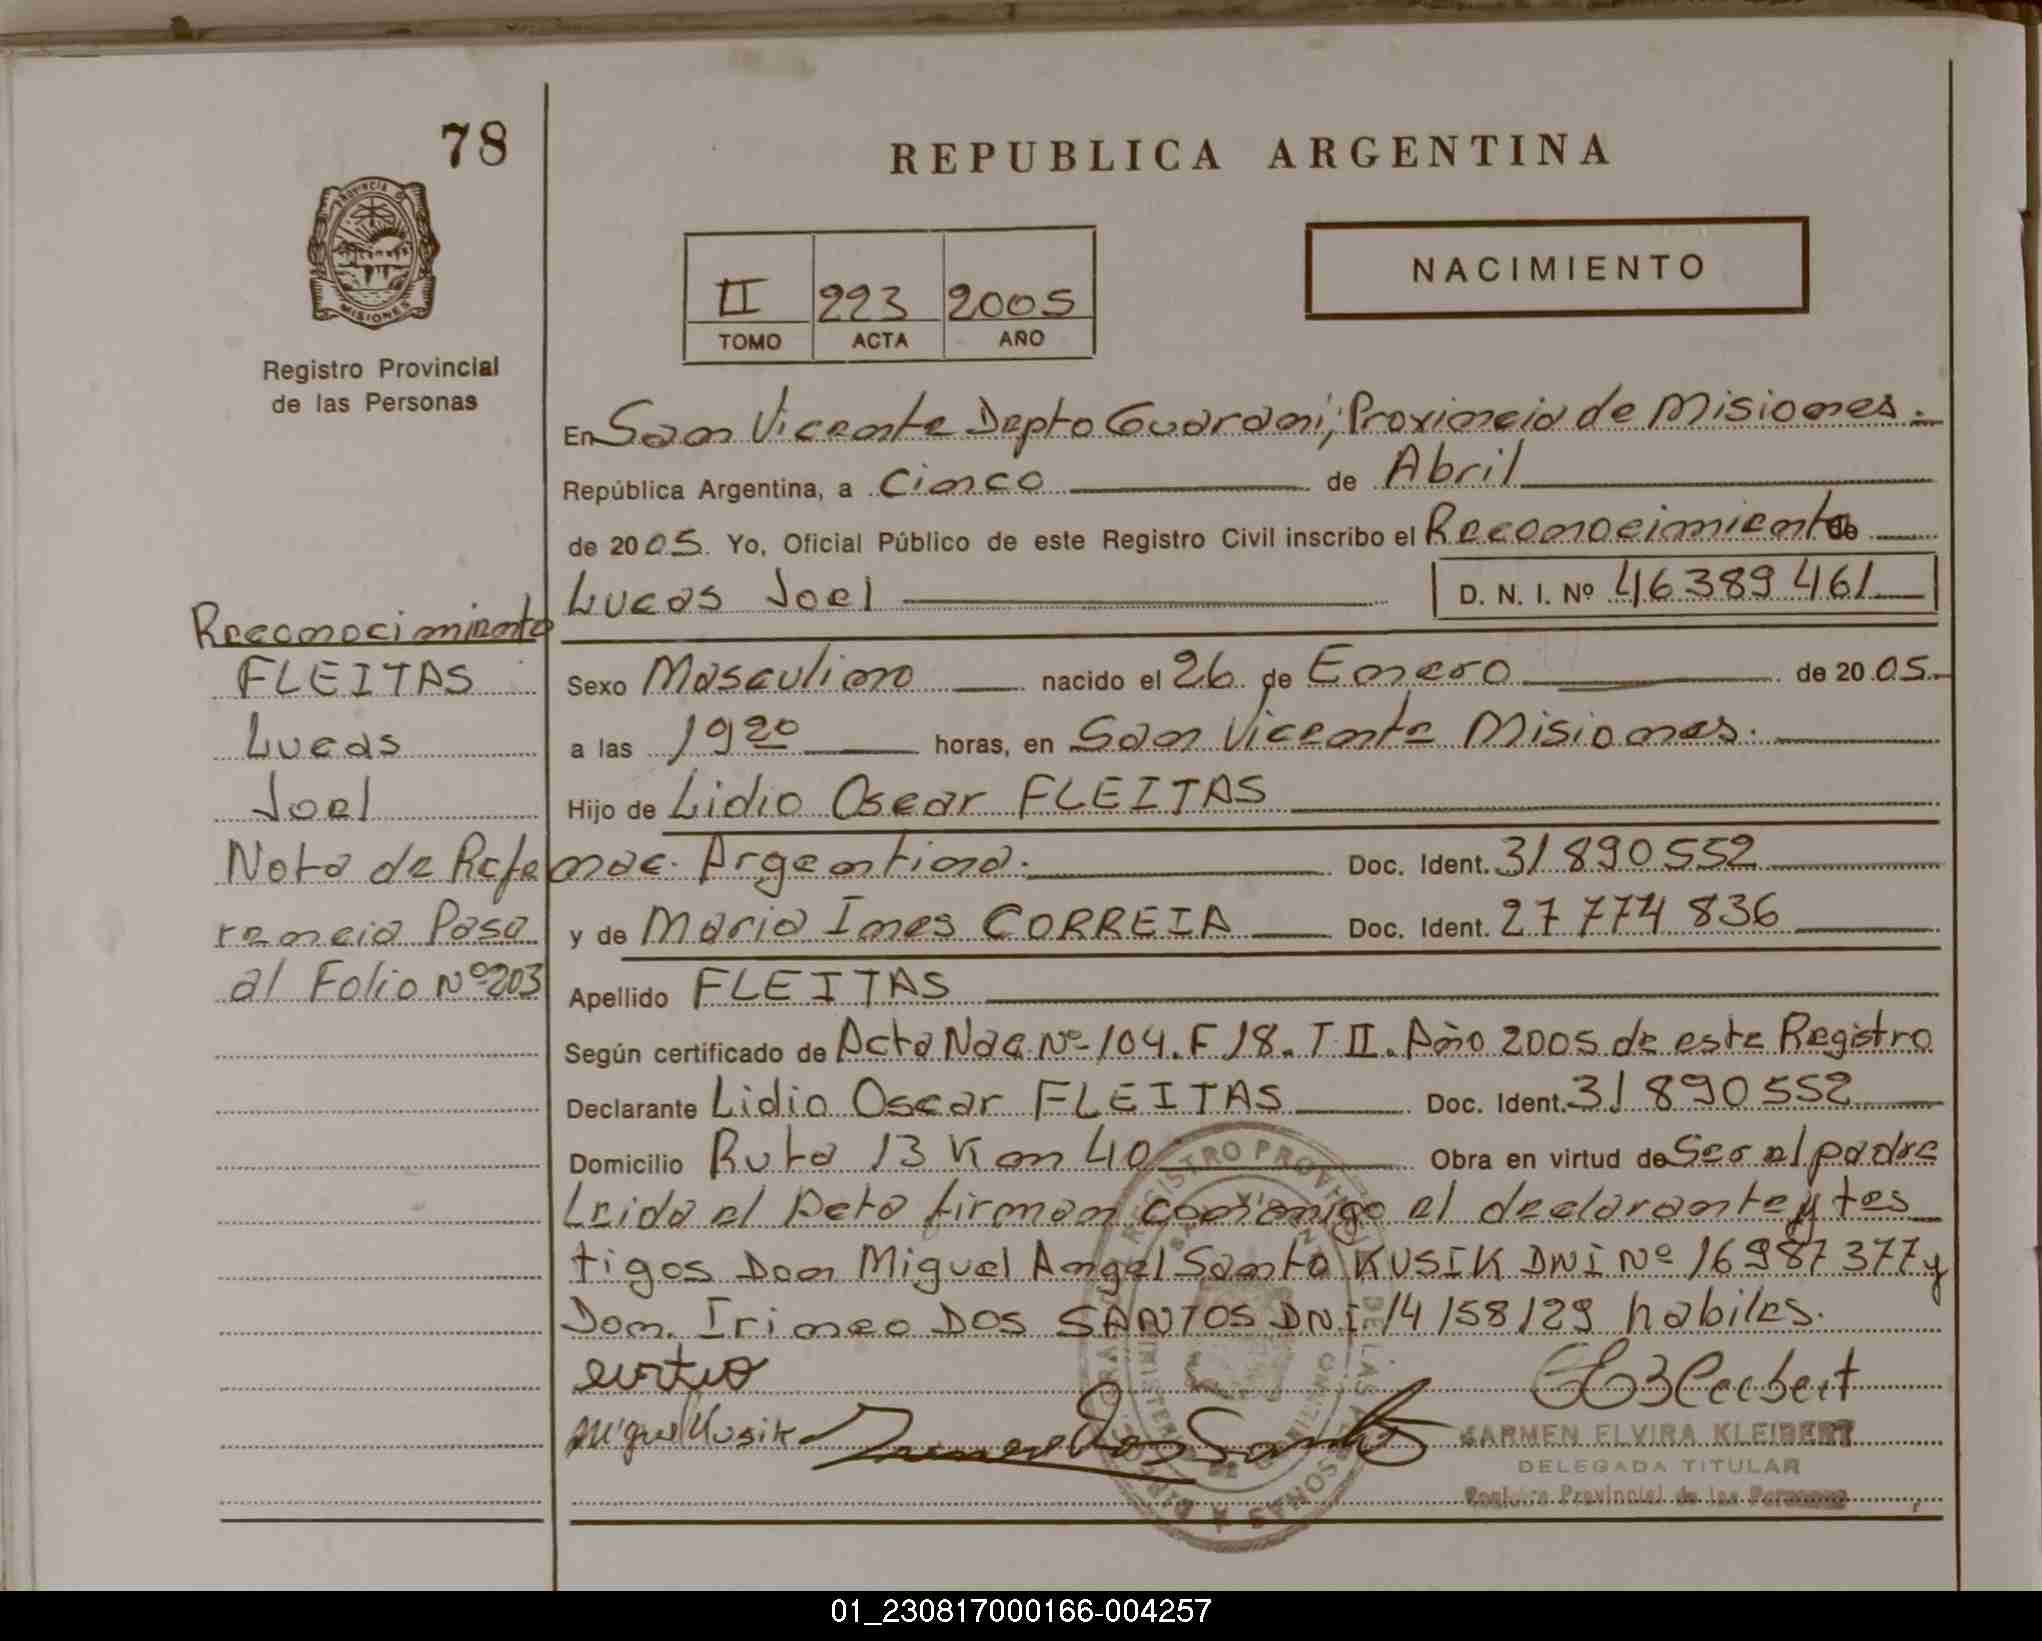 78
REPUBLICA ARGENTINA
PROVINCIA
MISIONES
Registro Provincial
de las Personas
II 223 2005
TOMO ACTA AÑO
NACIMIENTO
En San Vicente Depto Guarani, Provincia de Misiones.
República Argentina, a Cinco de Abril
de 2005. Yo, Oficial Público de este Registro Civil inscribo el Reconocimiento de
Lucas Joel D. N. I. Nº 46389461
Sexo Masculino nacido el 26 de Enero de 2005.
a las 19 20 horas, en San Vicente Misiones.
Hijo de Lidio Oscar FLEITAS
nac. Argentina. Doc. Ident. 31890552
y de Maria Ines CORREIA Doc. Ident. 27774836
Apellido FLEITAS
Según certificado de Acta Nac. Nº 104. F 18. T II. Año 2005 de este Registro
Declarante Lidio Oscar FLEITAS Doc. Ident. 31890552
Domicilio Ruta 13 Km 40 Obra en virtud de Ser el padre
Leida el Acta firman conmigo el declarante y tes
tigos Don Miguel Angel Santo KUSIK DNI Nº 16987377 y
Don. Irineo DOS SANTOS DNI 14158129 habiles.
Reconocimiento
FLEITAS
Lucas
Joel
Nota de Refe
rencia Pasa
al Folio Nº 203
Miguel Kusik
CARMEN ELVIRA KLEIBERT
DELEGADA TITULAR
Registro Provincial de las Personas
01_230817000166-004257